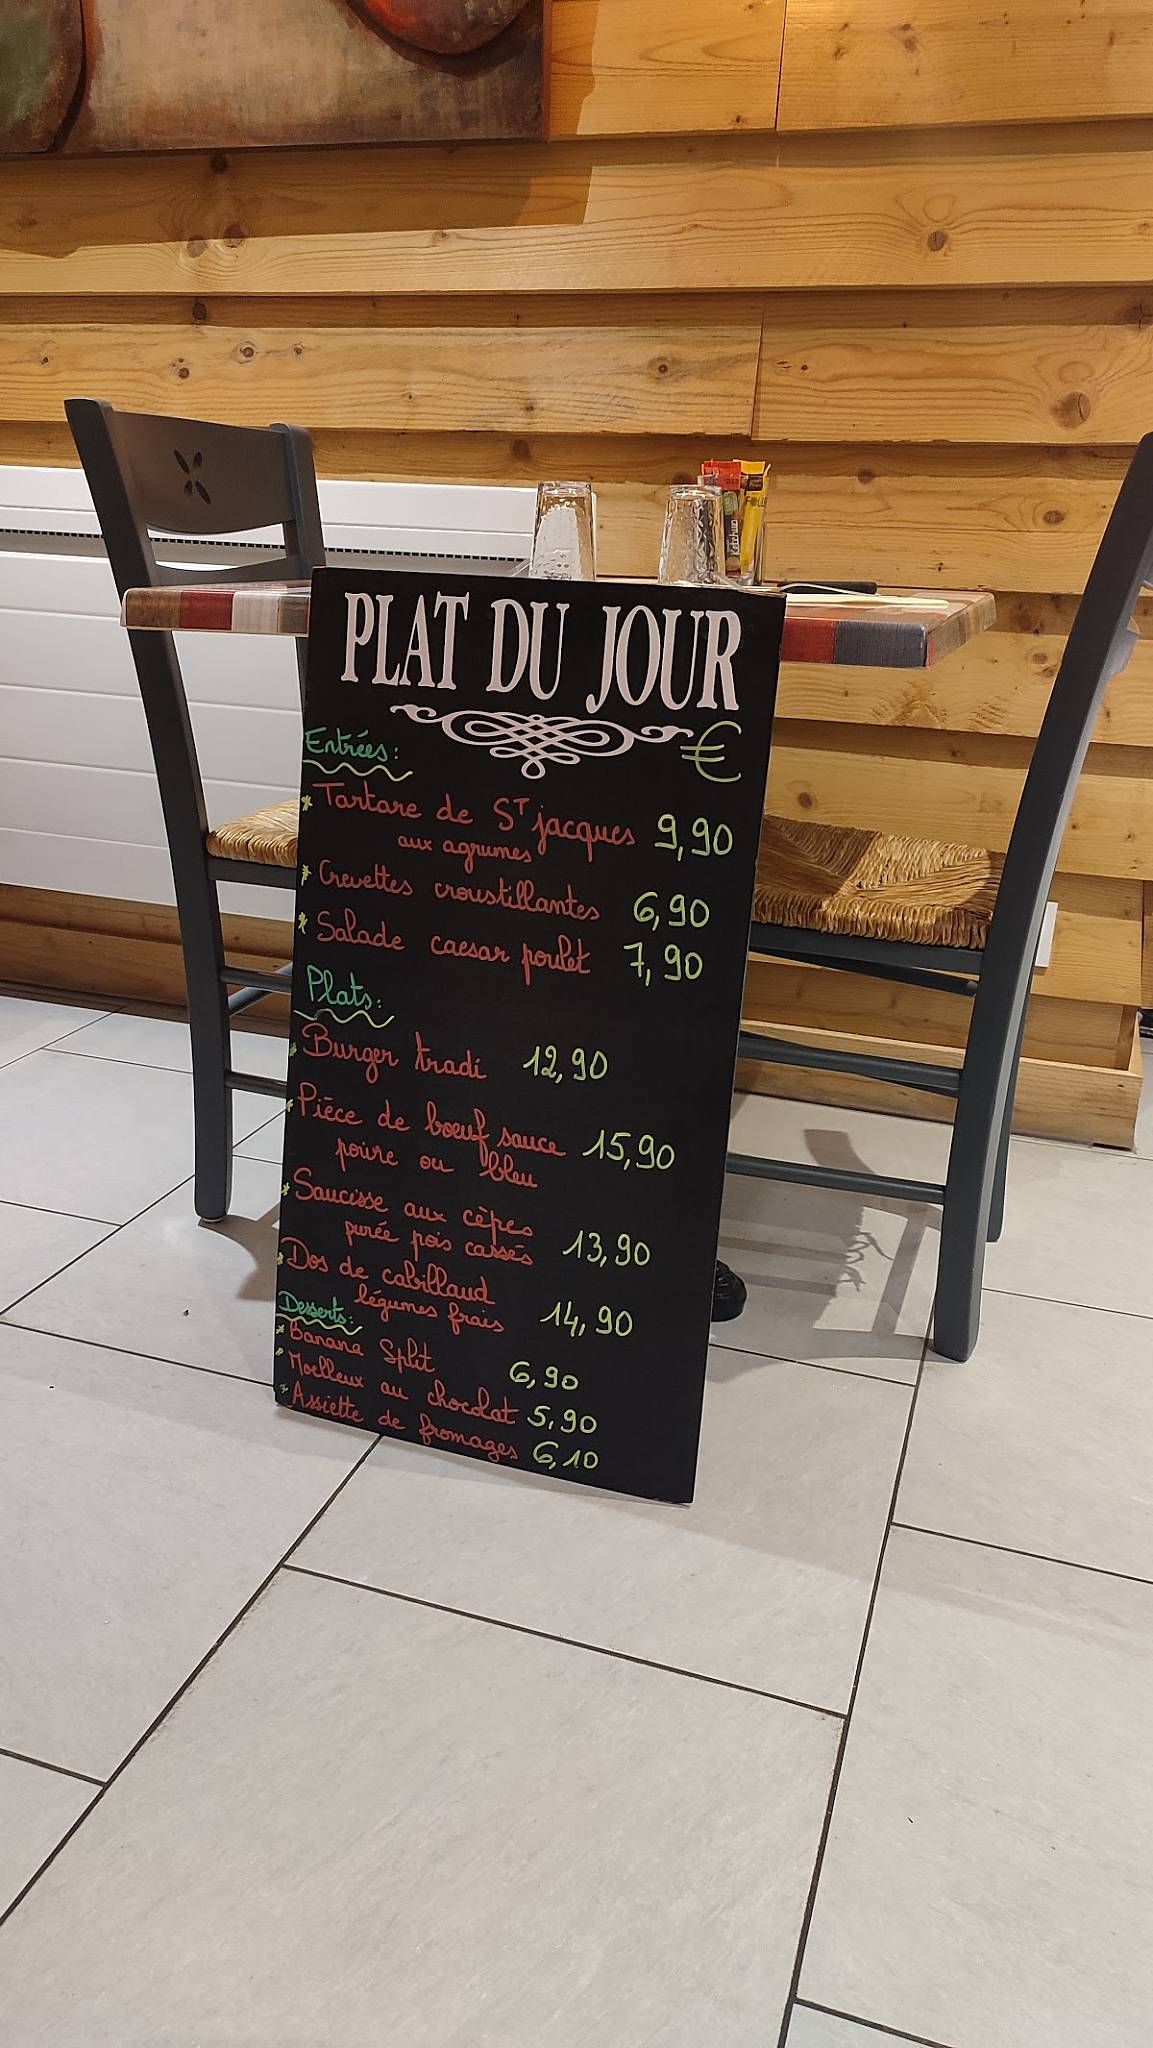 PLAT DU JOUR
€
Entrées:
* Tartare de S^T jacques 9,90
aux agrumes
* Crevettes croustillantes 6,90
* Salade caesar poulet 7,90
Plats:
* Burger tradi 12,90
* Pièce de boeuf sauce 15,90
poivre ou bleu
* Saucisse aux cèpes
purée pois cassés 13,90
* Dos de cabillaud
légumes frais 14,90
Desserts:
* Banana Split 6,90
* Moelleux au chocolat 5,90
* Assiette de fromages 6,10
Ketchup